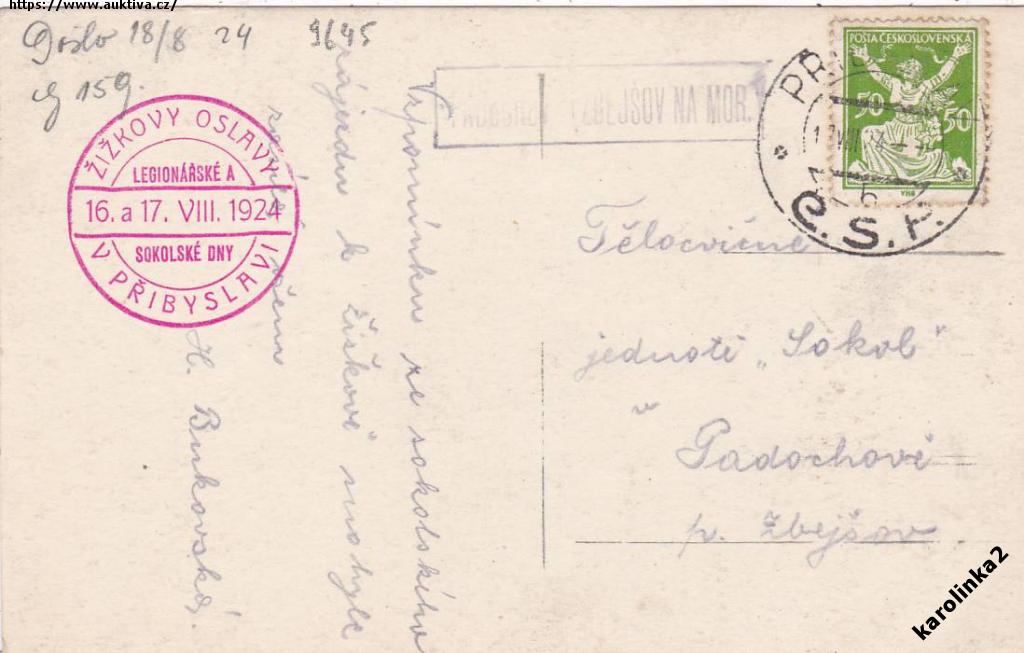 https://www.auktiva.cz/
Došlo 18/8 24
9645
159.
ŽIŽKOVY OSLAVY
LEGIONÁŘSKÉ A
16. a 17. VIII. 1924
SOKOLSKÉ DNY
V PŘIBYSLAVI
ZBEJŠOV NA MOR.
POŠTA ČESKOSLOVENSKÁ
50 50
Č.S.P.
b
Vzpomínku ze sokolského
zájezdu k „Žižkově" mohyle
všem
H. Burkovská.
Tělocvičné
jednotě „Sokol"
v
Padochově
p. Zbejšov
karolinka2